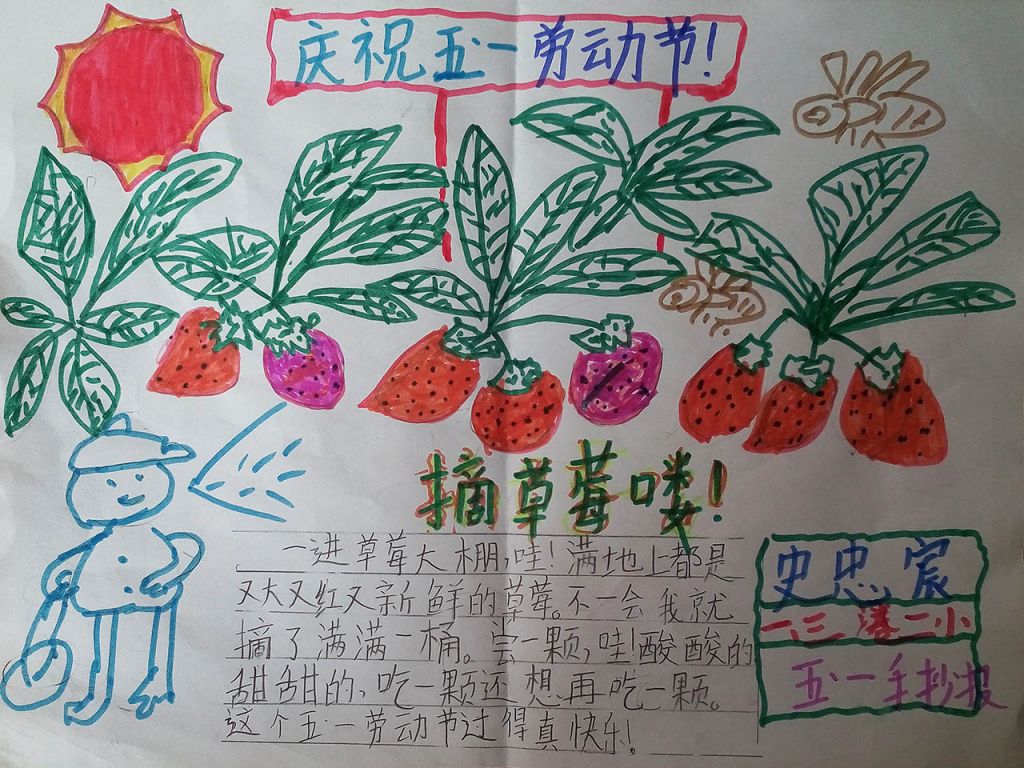 庆祝五一劳动节!
摘草莓喽!
一进草莓大棚,哇!满地上都是
又大又红又新鲜的草莓。不一会我就
摘了满满一桶。尝一颗,哇!酸酸的
甜甜的,吃一颗还想再吃一颗。
这个五一劳动节过得真快乐!
史忠宸
一、三 潘二小
五·一手抄报